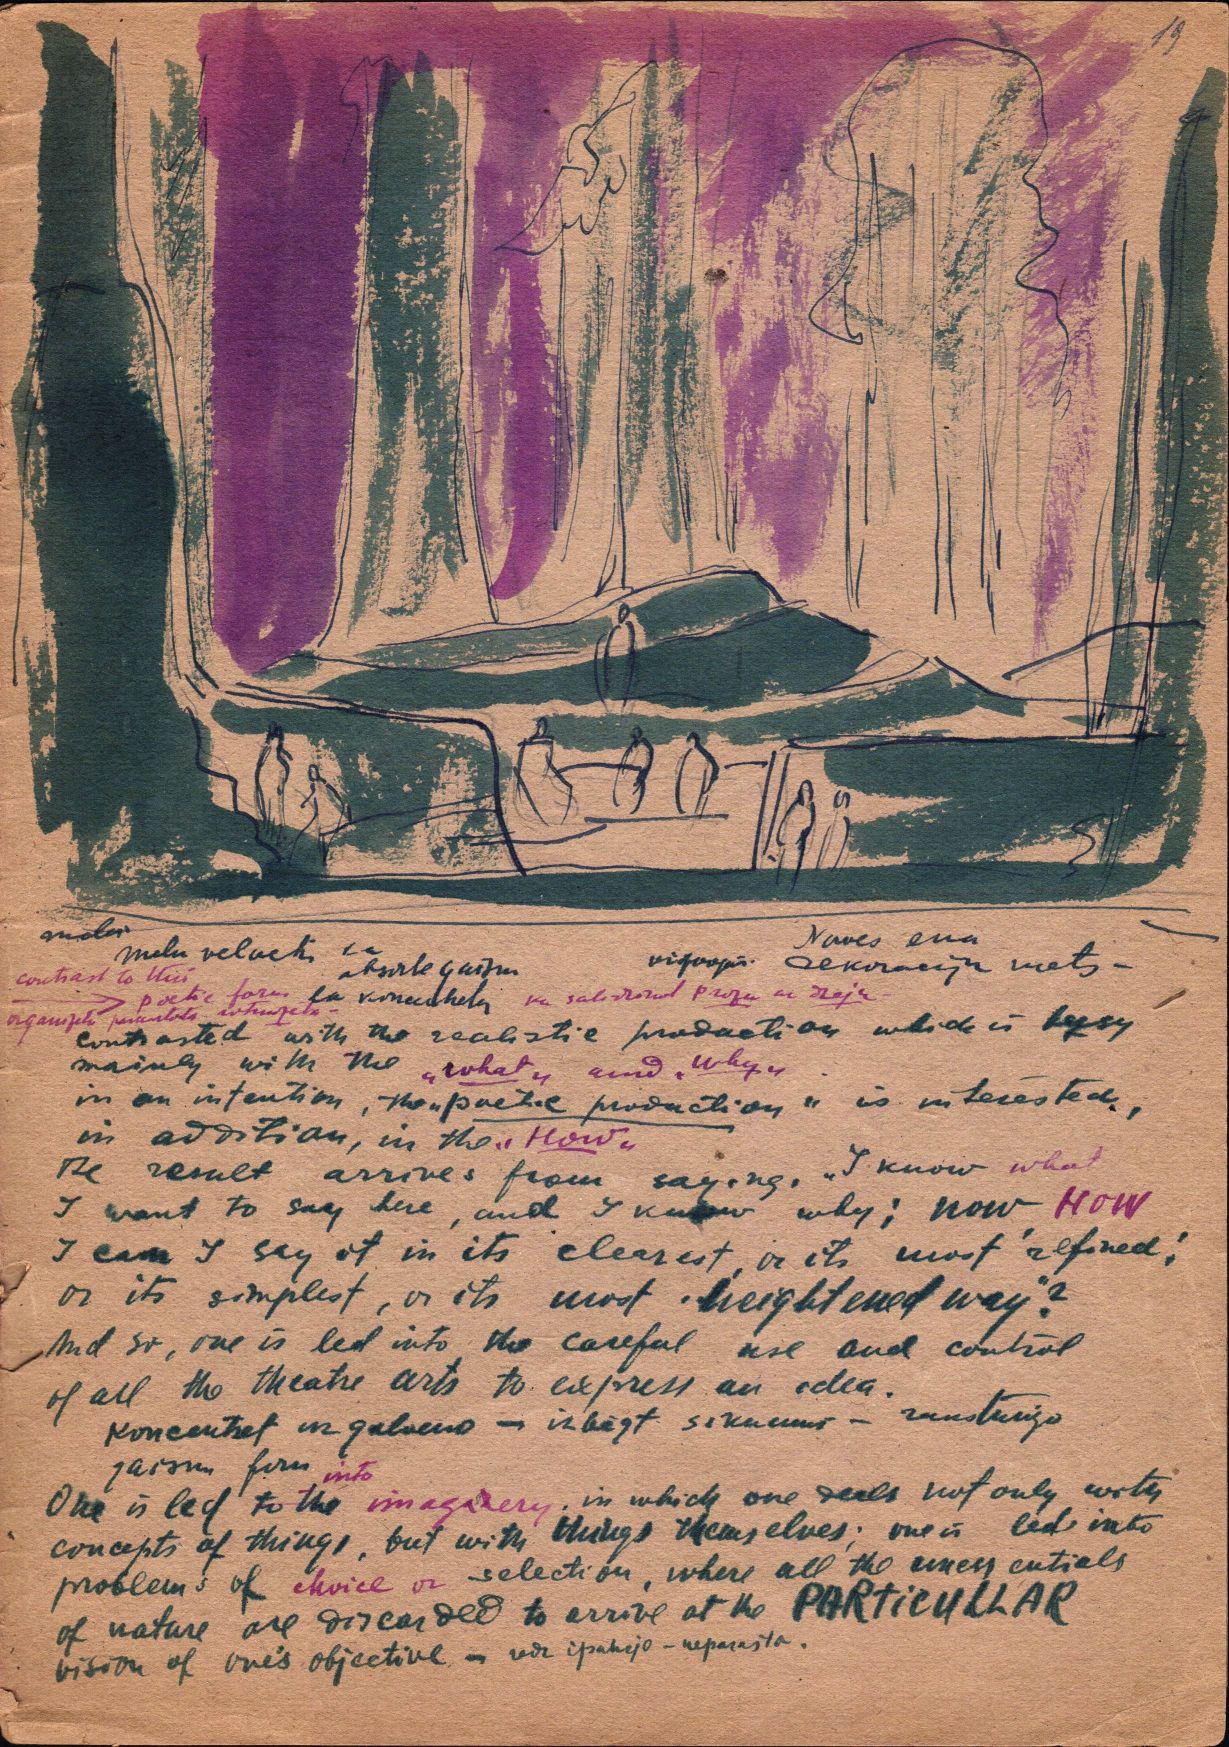 19
melni velveti
absorbē gaismu
contrast to this
poetic form
contrasted with the realistic production which is busy
mainly with the „what„ and „why„
in an intention, the „poetic production" is interested,
in addition, in the „How„
The result arrives from saying, „I know what
I want to say here, and I know why; now HOW
I can I say it in its clearest, or its most refined;
or its simplest, or its most heightened way"?
And so, one is led into the careful use and control
of all the theatre arts to express an idea.
gaismu
into
One is led to the imagery, in which one deals not only with
concepts of things, but with things themselves; one is led into
problems of choice or selection, where all the unessentials
of nature are discarded to arrive at the PARTiCULLAR
vision of one's objective –